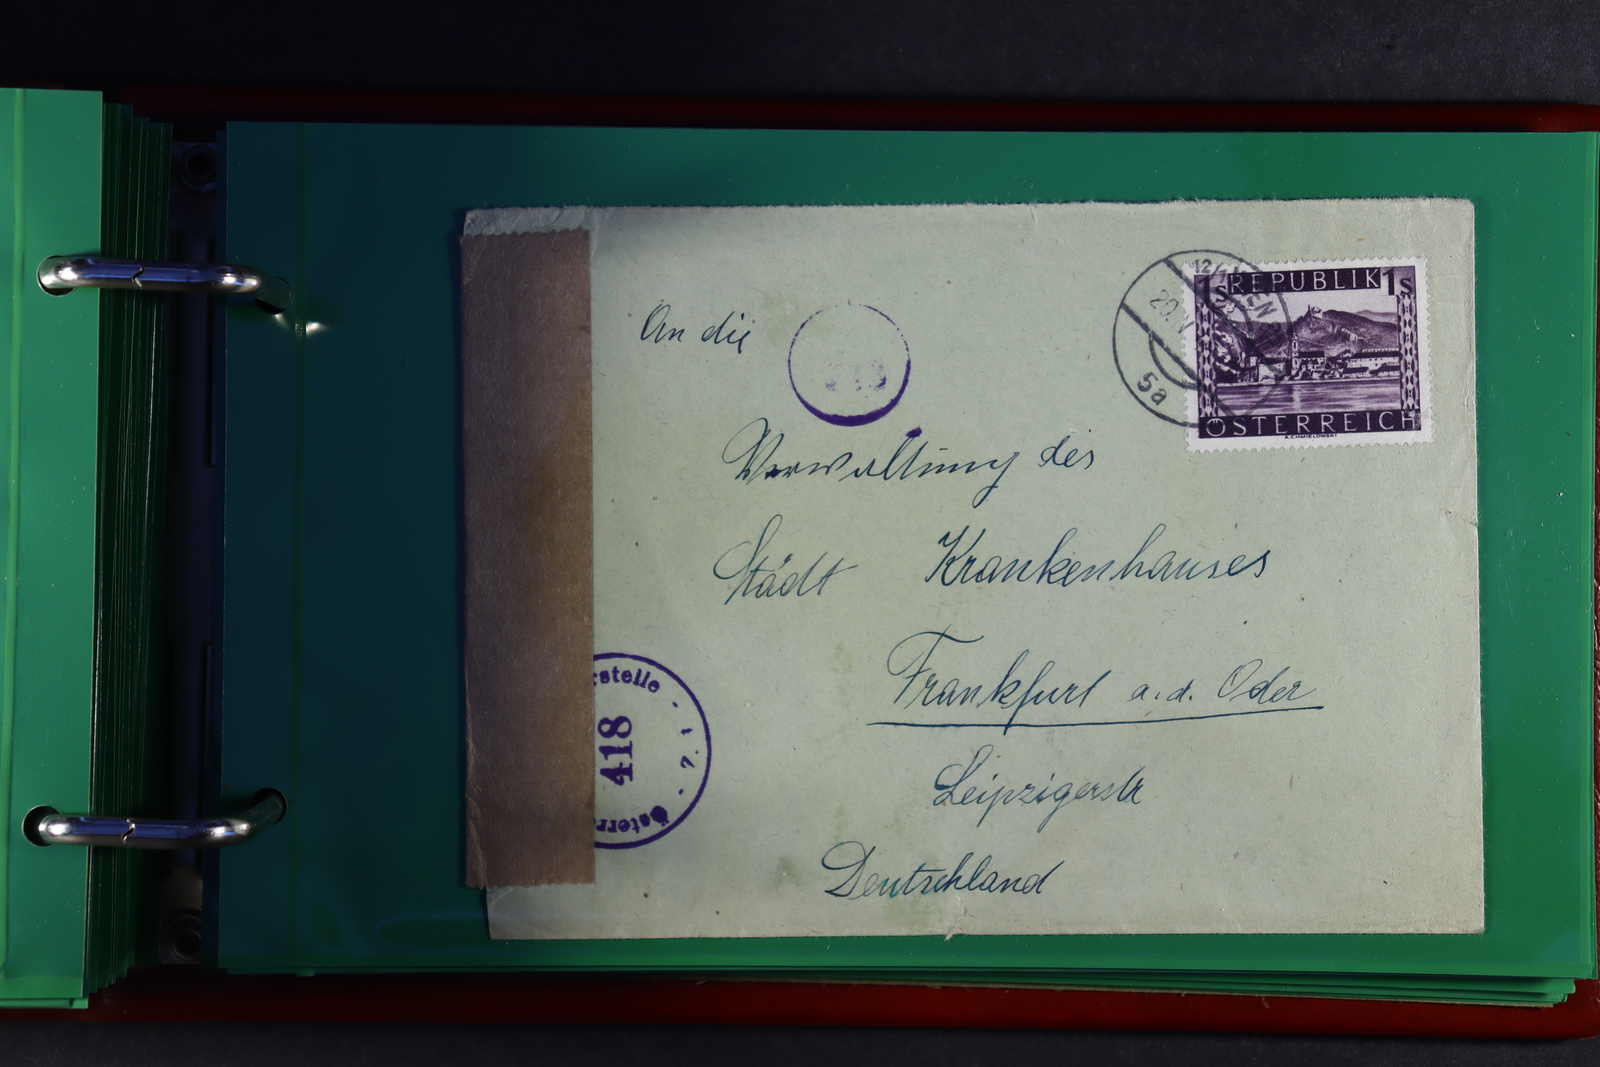 An die
Verwaltung des
Städt Krankenhauses
Frankfurt a. d. Oder
Leipzigerstr
Deutschland
1S REPUBLIK 1S
ÖSTERREICH
12/1 WIEN
20. V
5a
rstelle
418
Österr